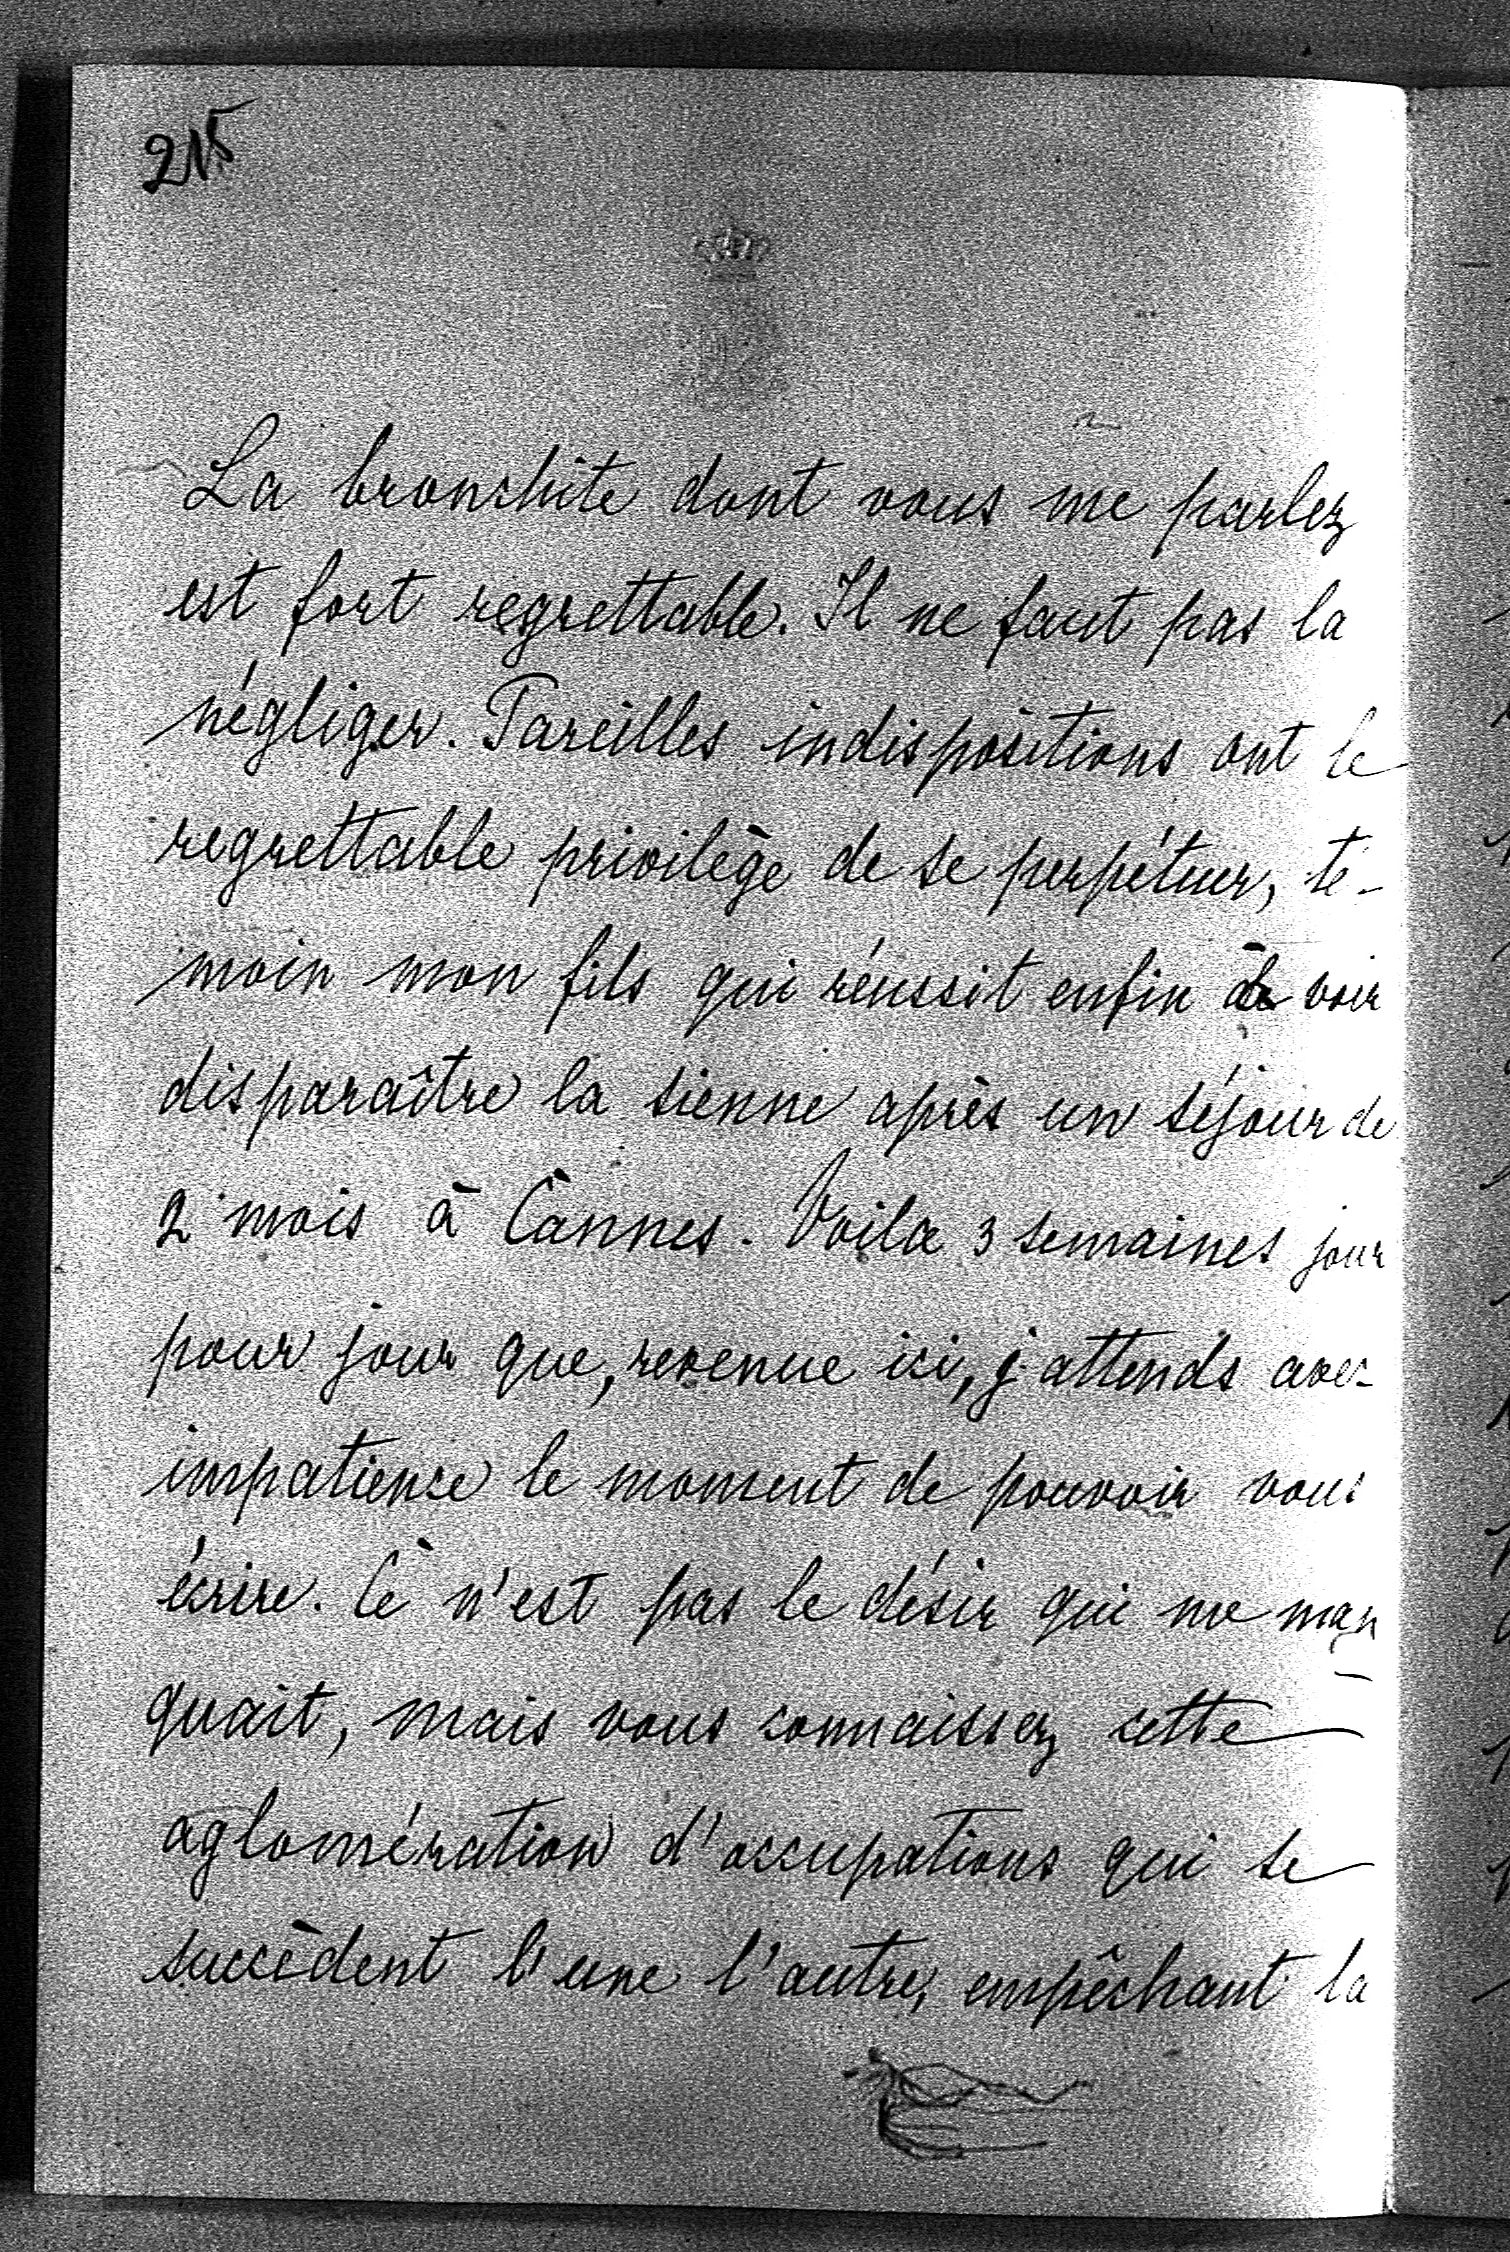 215
La bronchite dont vous me parlez
est fort regrettable. Il ne faut pas la
négliger. Pareilles indispositions ont le
regrettable privilège de se perpétuer, té-
moin mon fils qui réussit enfin à voir
disparaître la sienne après un séjour de
2 mois à Cannes. Voila 3 semaines jour
pour jour que, revenue ici, j'attends avec
impatience le moment de pouvoir vous
écrire. Ce n'est pas le désir qui me man
quait, mais vous connaissez cette
aglomération d'occupations qui se
succèdent l'une l'autre, empêchant la